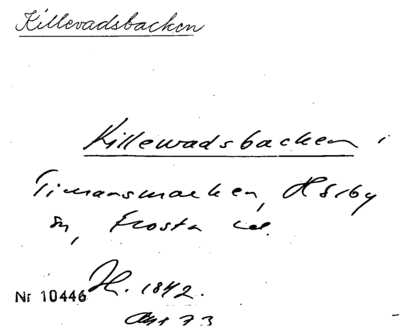 Killevadsbacken
Killewadsbacken i
Timansmarken, Hörby
sn, Frosta hd.
Nr 10446 H. 1842.
Akt 73